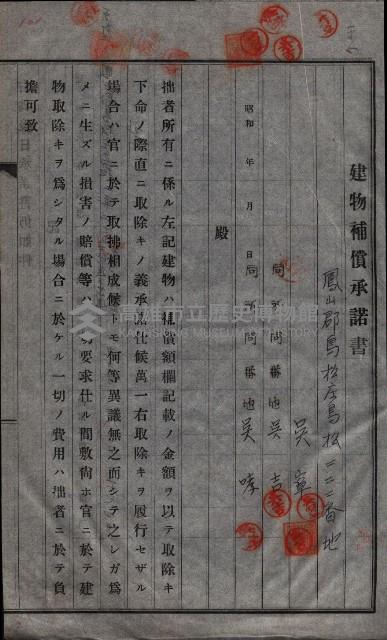 建物補償承諾書
鳳山郡鳥松庄鳥松二二二番地
吳 章
同所同番地 吳 吉
同所同番地 吳 哮
昭和 年 月 日
殿
拙者所有ニ係ル左記建物ハ補償額欄記載ノ金額ヲ以テ取除キ
下命ノ際直ニ取除キノ義承諾仕候萬一右取除キヲ履行セザル
場合ハ官ニ於テ取拂相成候トモ何等異議無之而シテ之レガ爲
メニ生ズル損害ノ賠償等ハ一切要求仕ル間敷尙ホ官ニ於テ建
物取除キヲ爲シタル場合ニ於ケル一切ノ費用ハ拙者ニ於テ負
擔可致
高雄市立歷史博物館